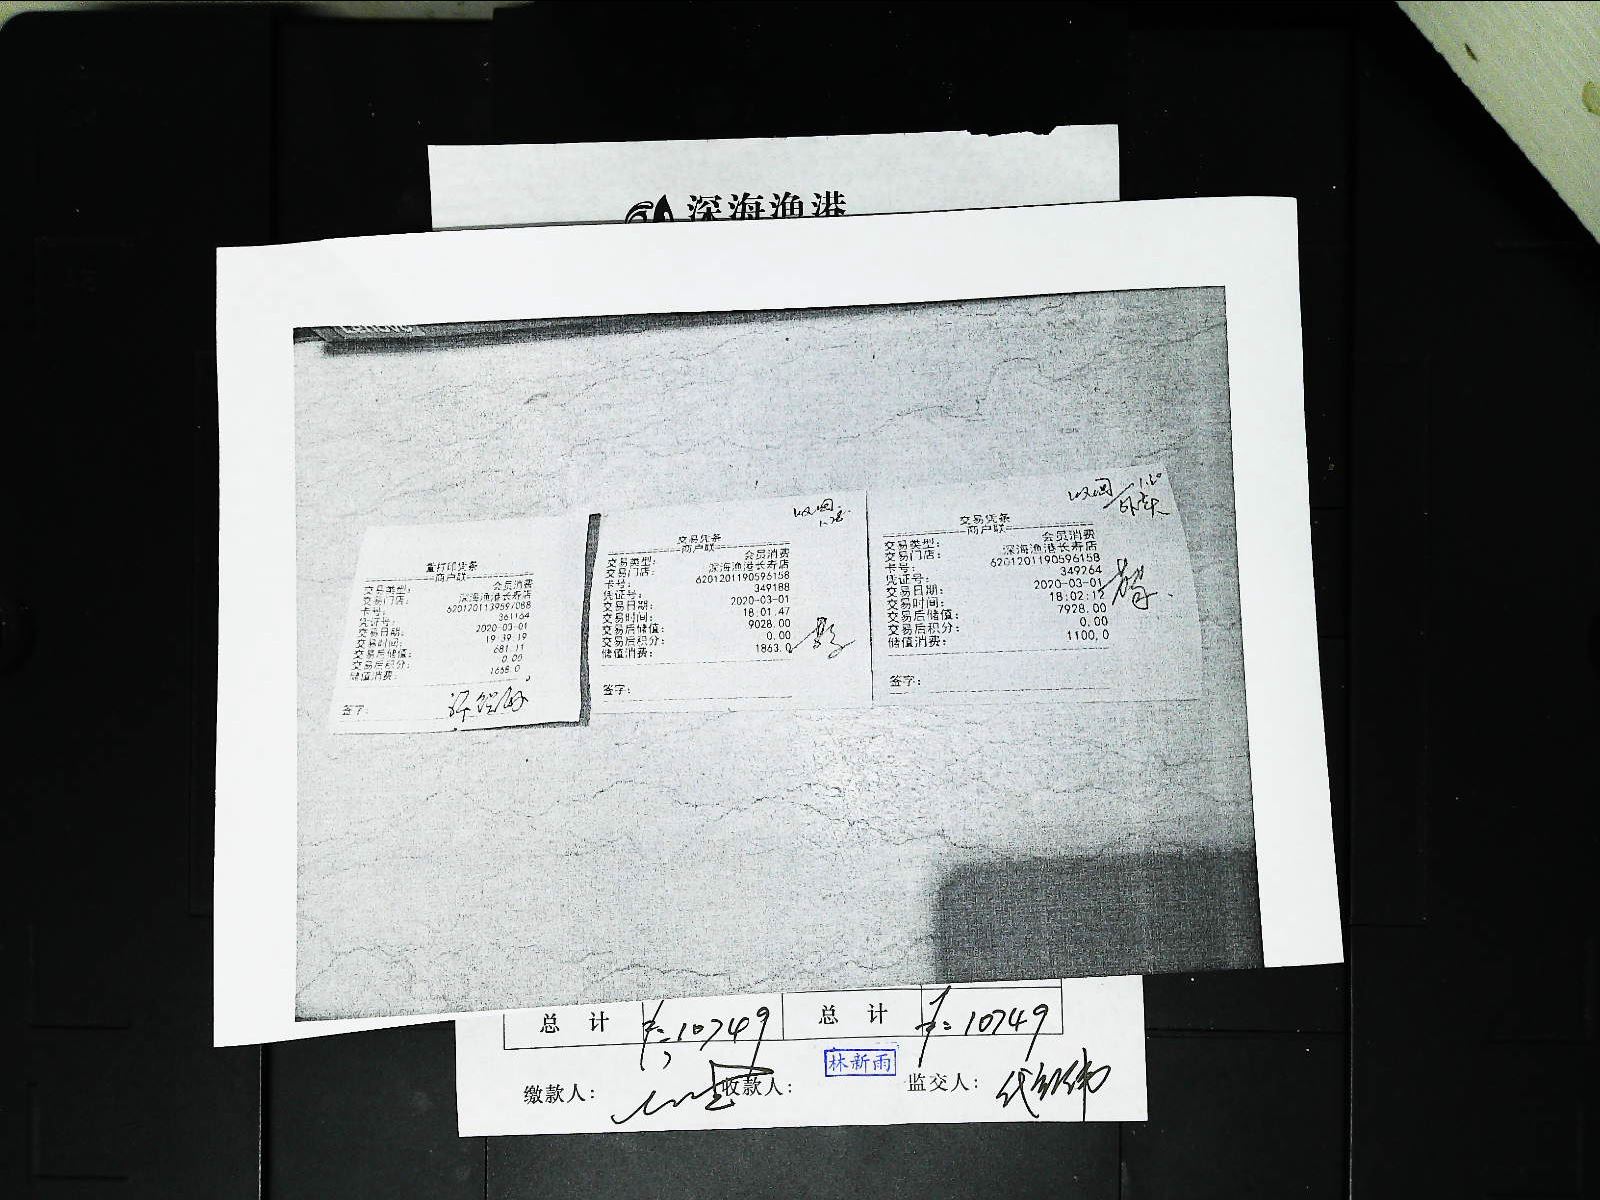 深海渔港
Lenovo
重打印凭条
商户联
交易类型： 会员消费
交易门店： 深海渔港长寿店
卡号： 6201201139597088
凭证号： 361164
交易日期： 2020-03-01
交易时间： 19:39:19
交易后储值： 681.11
交易后积分： 0.00
储值消费： 1658.0
签字：
收回
1.28.
交易凭条
商户联
交易类型： 会员消费
交易门店： 深海渔港长寿店
卡号： 6201201190596158
凭证号： 349188
交易日期： 2020-03-01
交易时间： 18:01:47
交易后储值： 9028.00
交易后积分： 0.00
储值消费： 1863.0
签字：
收回
交易凭条
商户联
交易类型： 会员消费
交易门店： 深海渔港长寿店
卡号： 6201201190596158
凭证号： 349264
交易日期： 2020-03-01
交易时间： 18:02:12
交易后储值： 7928.00
交易后积分： 0.00
储值消费： 1100.0
签字：
总 计 10749 总 计 10749
缴款人： 收款人： 林新雨 监交人：